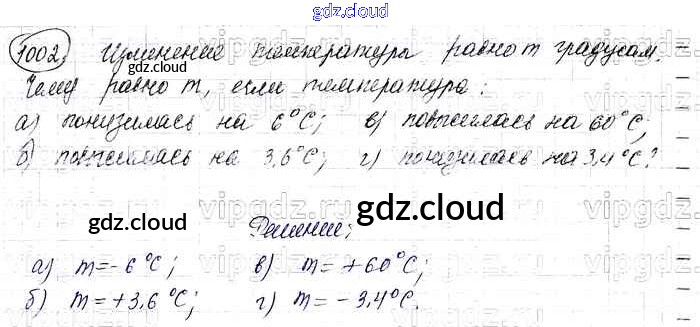 gdz.cloud
1002. Изменение температуры равно m градусам.
Чему равно m, если температура:
а) понизилась на 6°С; в) повысилась на 60°С;
б) повысилась на 3,6°С; г) понизилась на 3,4°С?
gdz.cloud
gdz.cloud
gdz.cloud
Решение:
а) m=-6°С; в) m=+60°С;
б) m=+3,6°С; г) m=-3,4°С.